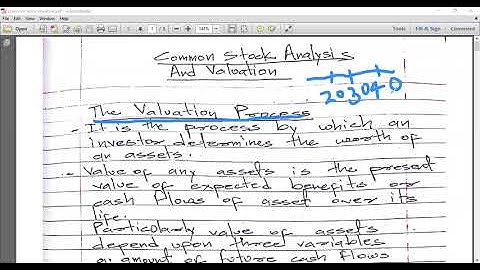 Tools
Fill & Sign
Comment
Common Stock Analysis
And Valuation
20 30 40
The Valuation Process
- It is the process by which an
investor determines the worth of
an assets.
- Value of any assets is the present
value of expected benefits or
cash flows of asset over its
life.
Particularly value of assets
depend upon three variables
amount of future cash flows